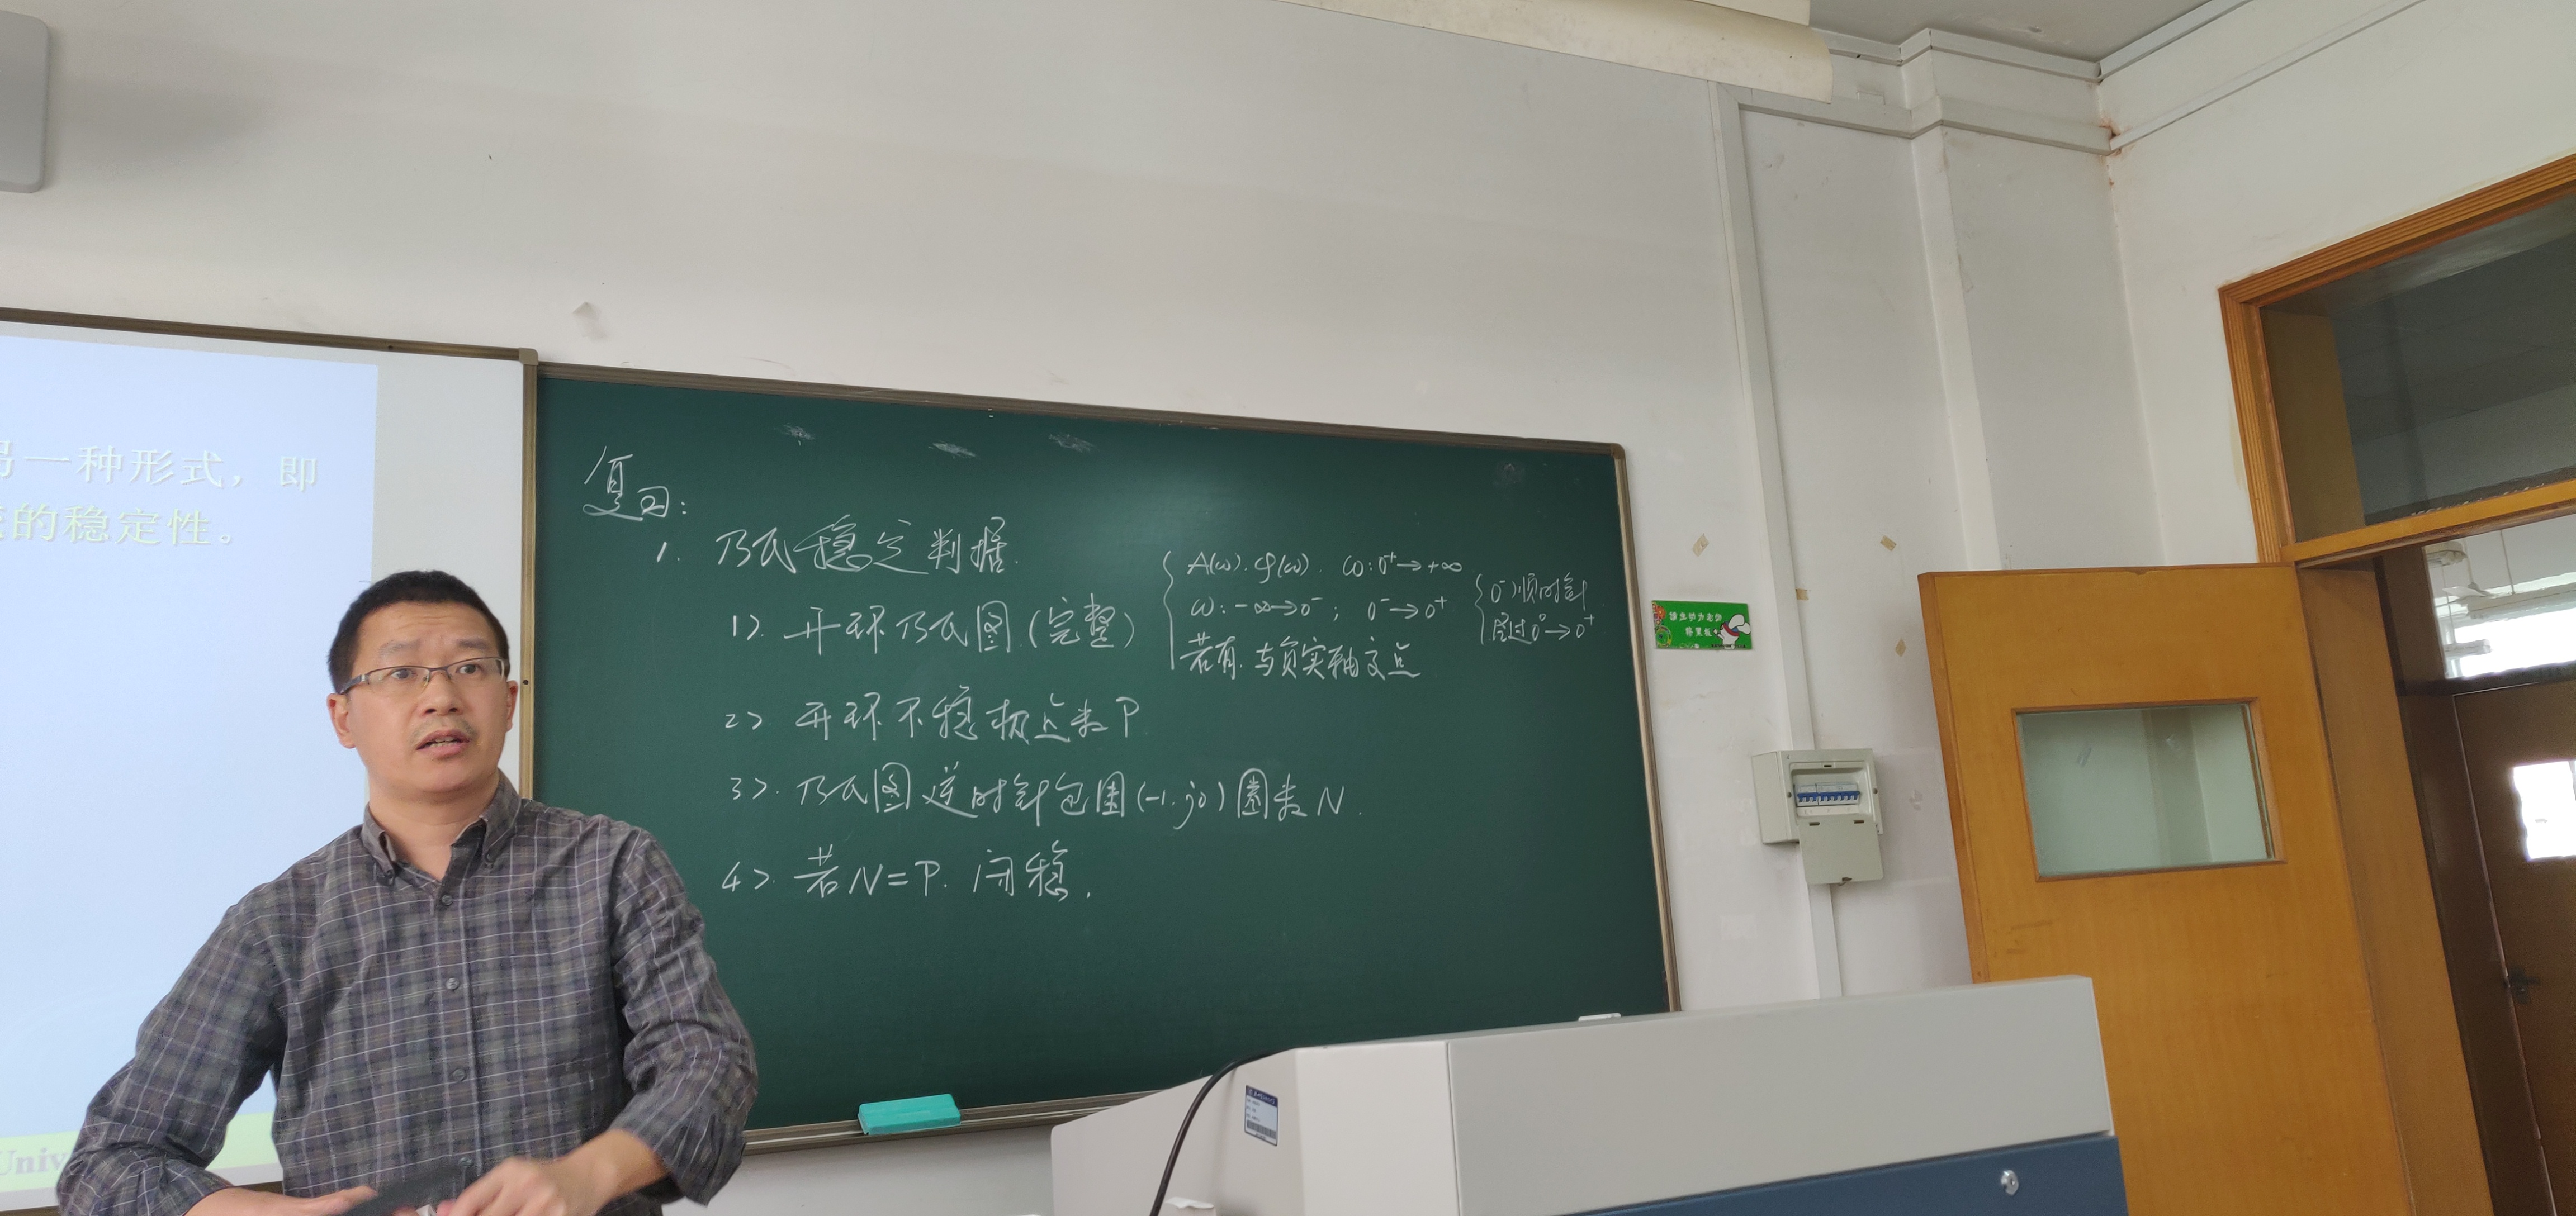 另一种形式，即
的稳定性。
Univ
复习：
1. 乃氏稳定判据.
1>. 开环乃氏图.(完整)
A(ω).φ(ω). ω:0⁺→+∞
ω:-∞→0⁻; 0⁻→0⁺
若有.与负实轴交点
0⁻顺时针
0°→0⁺
2> 开环不稳极点数P
3>. 乃氏图逆时针包围(-1.j0)圈数N.
4>. 若N=P. 闭稳.